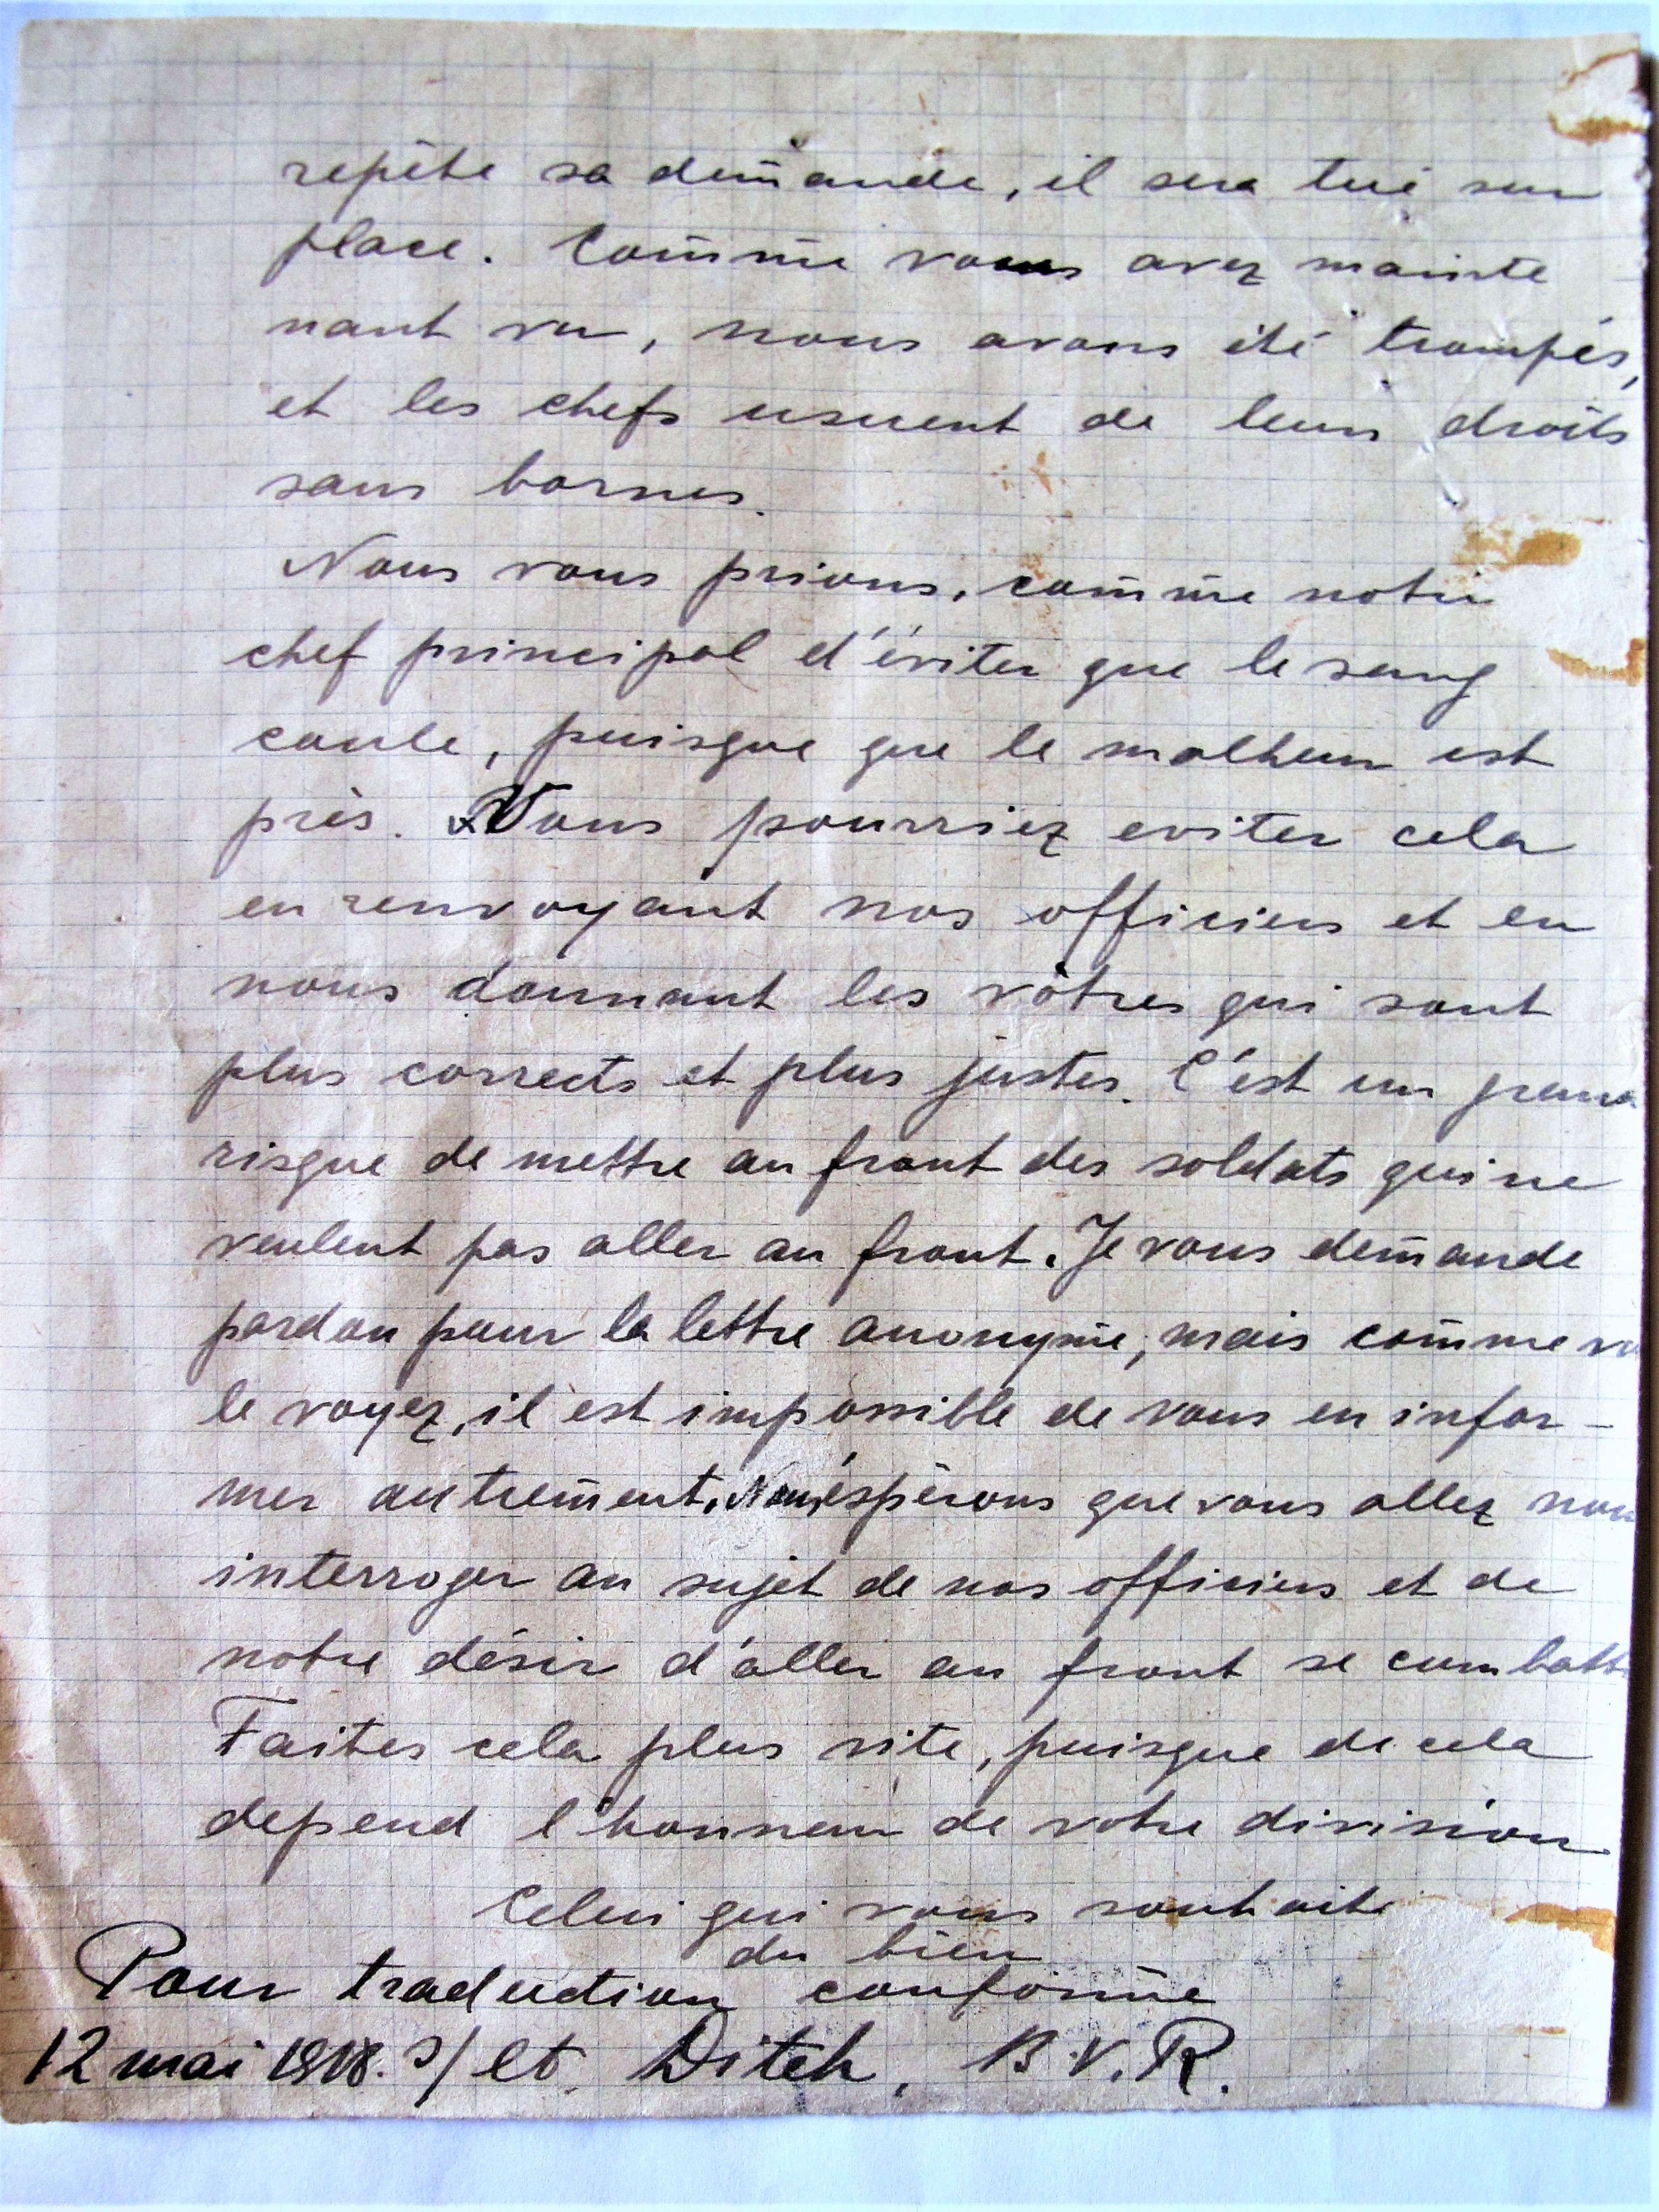 repète sa demande, il sera tué sur
place. Comme vous avez mainte
nant vu, nous avons été trompés,
et les chefs usuent de leurs droits
sans bornes.
Nous vous prions, comme notre
chef principal d'éviter que le sang
coule, puisque que le malheur est
près. Vous pourriez eviter cela
en renvoyant nos officiers et en
nous donnant les vôtres qui sont
plus corrects et plus justes. C'est un
risque de mettre au front des soldats qui ne
veulent pas aller au front. Je vous demande
pardon pour la lettre anonyme, mais comme
le voyez, il est impossible de vous en infor-
mer autrement. Nous éspérons que vous allez
interroger au sujet de nos officiers et de
notre désir d'aller au front se combatt
Faites cela plus vite, puisque de cela
depend l'honneur de votre division
Celui qui vous souhaite
du bien
Pour traduction conforme
12 mai 1918. s/ Lt. Ditch, B.V.R.